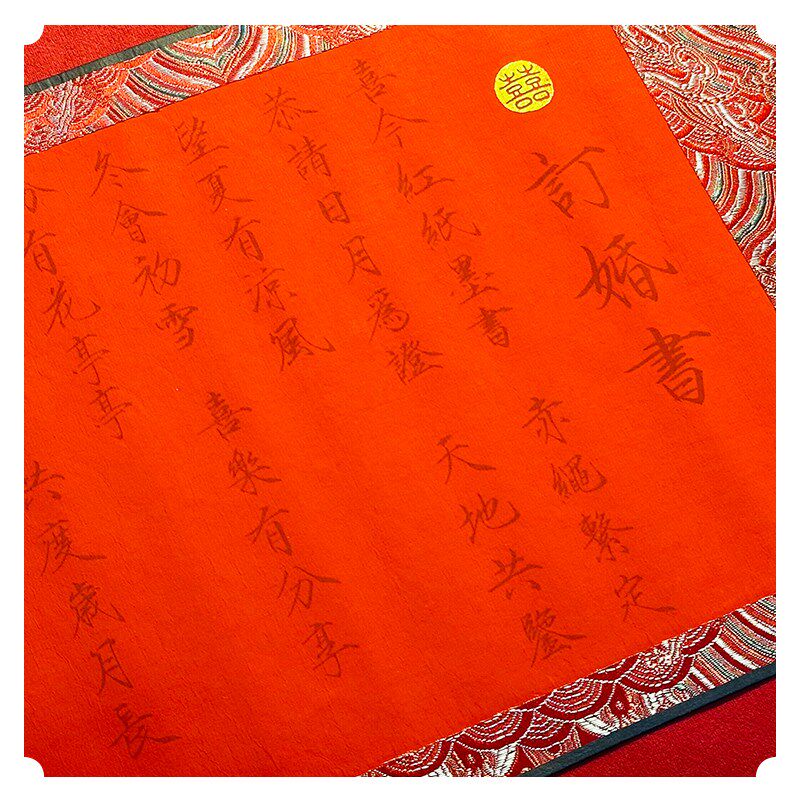 囍
訂婚書
喜今紅紙墨書 赤繩繫定
恭請日月爲證 天地共鑒
望夏有涼風
冬會初雪 喜樂有分享
分有花亭亭
共度歲月長